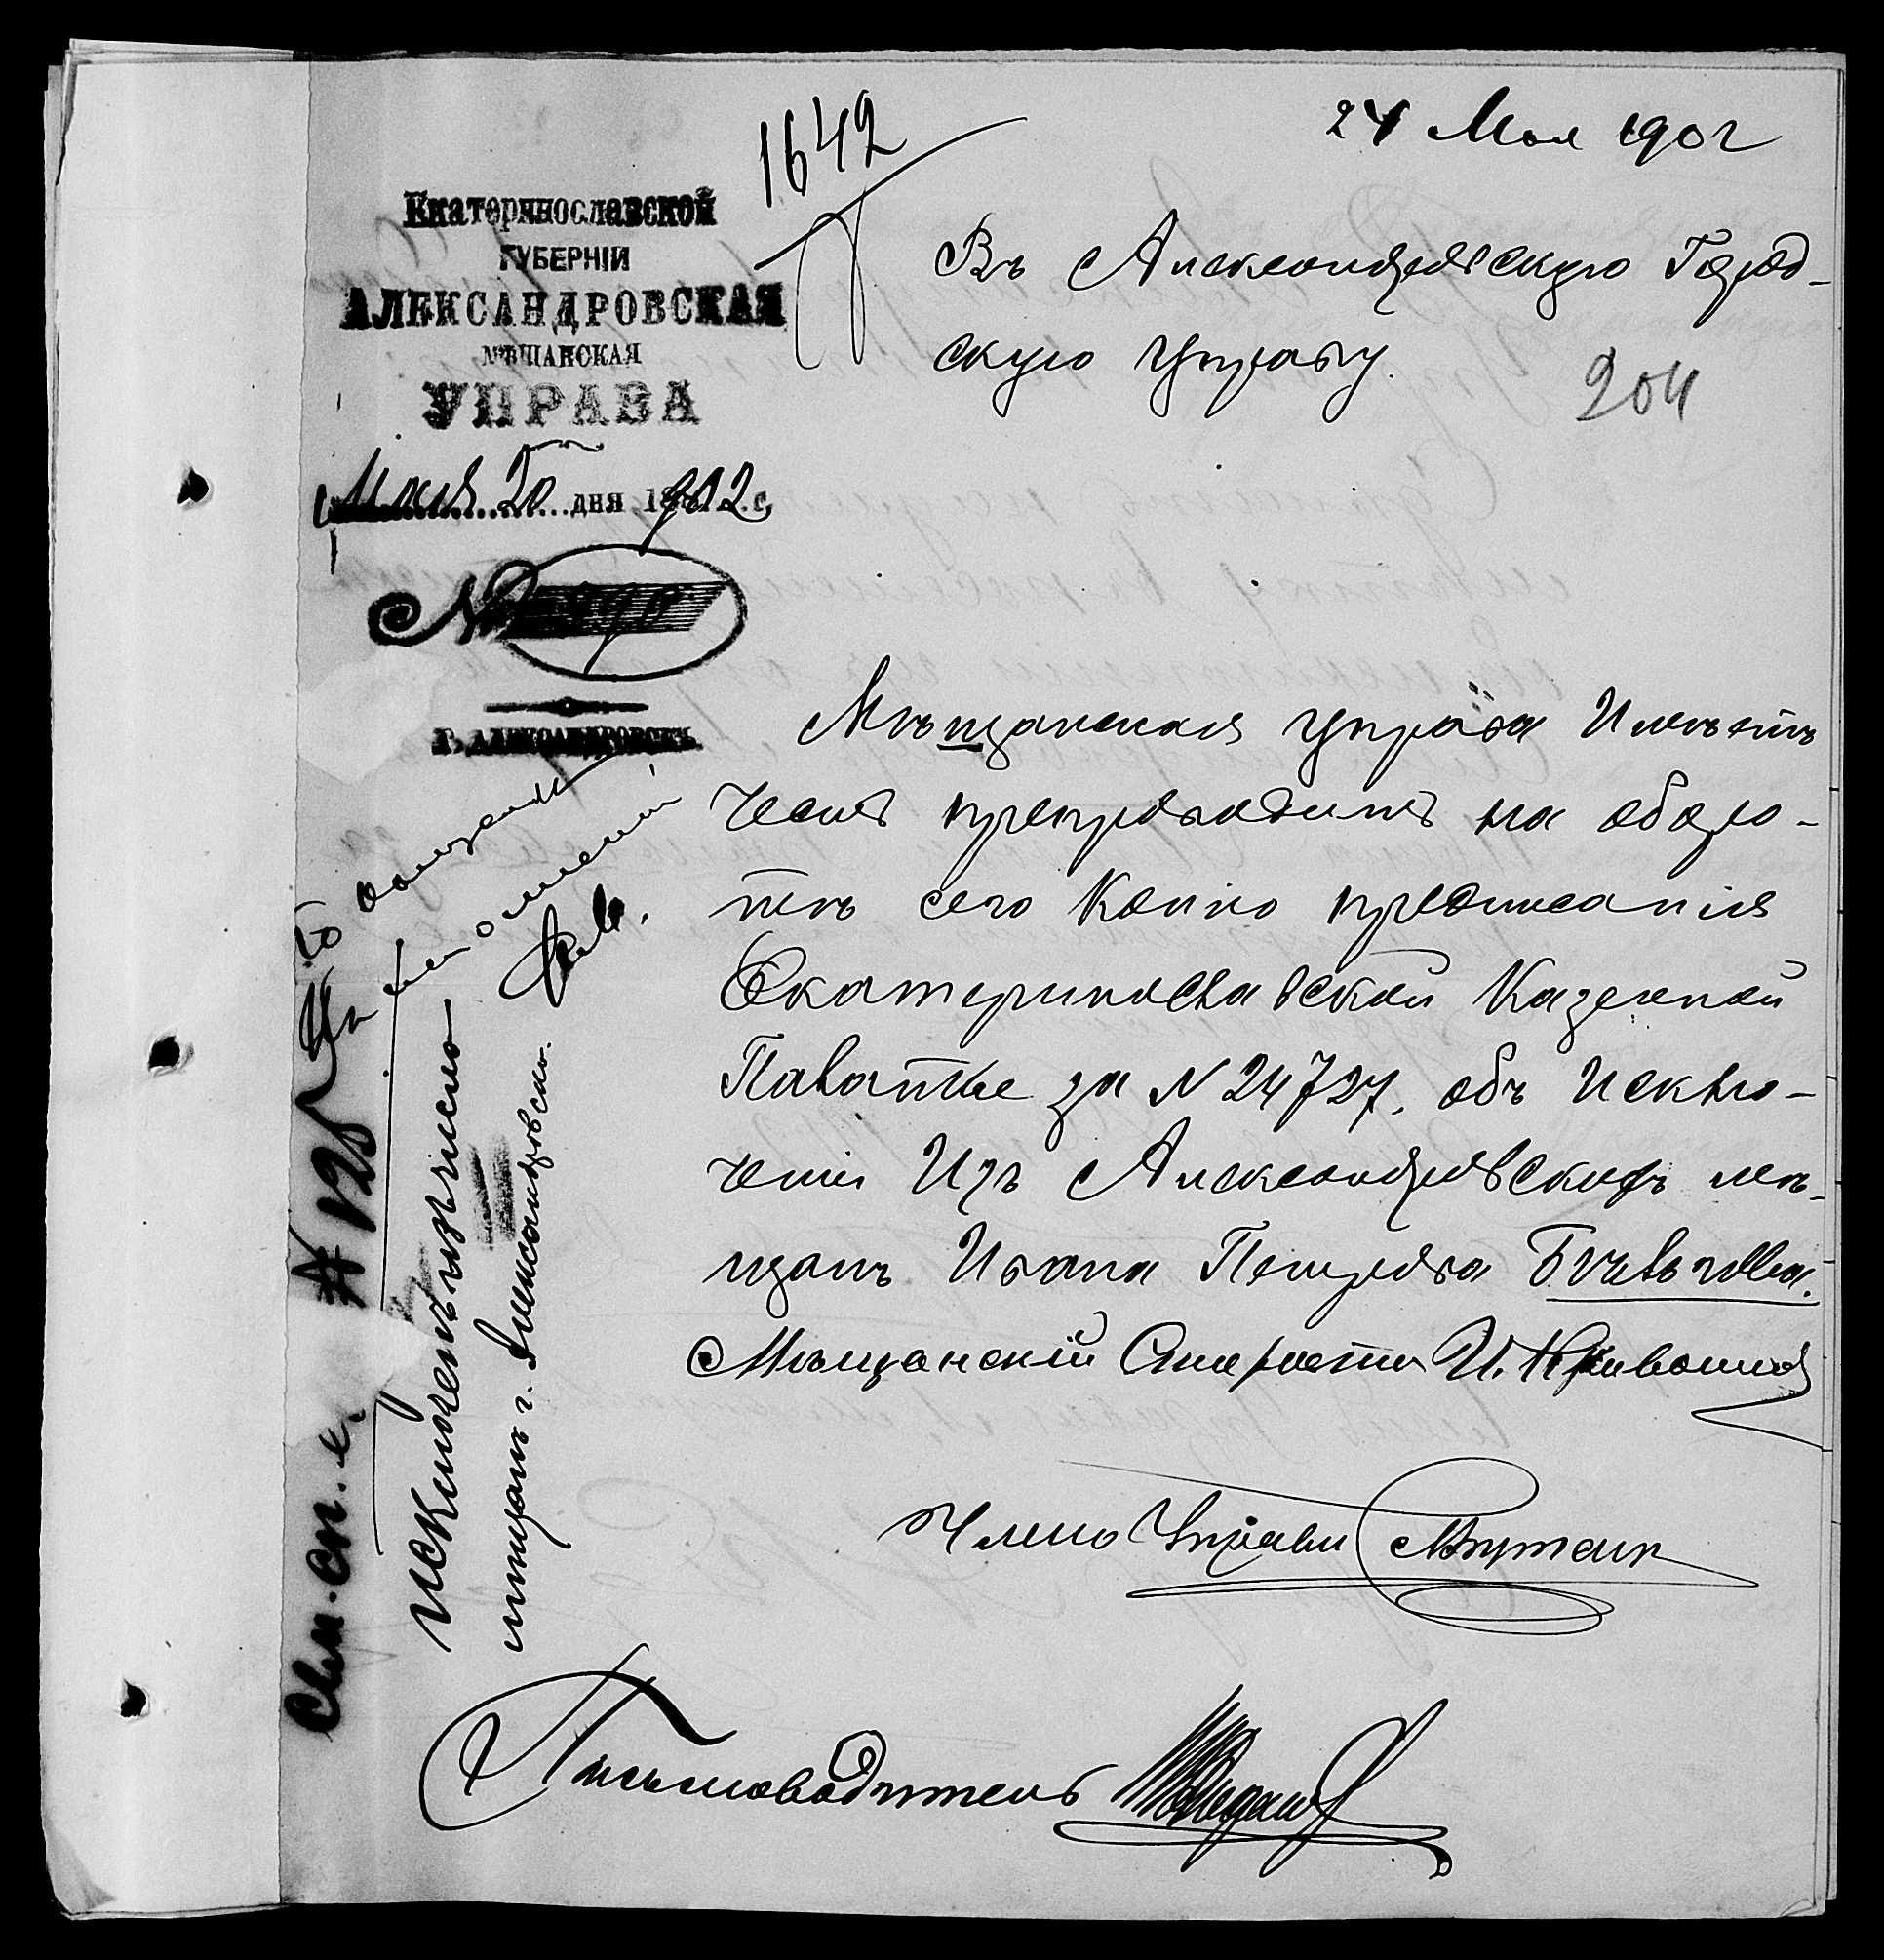 1642
24 Мая 1902
Екатеринославской
ГУБЕРНІИ
АЛЕКСАНДРОВСКАЯ
МѢЩАНСКАЯ
УПРАВА
Мая 20 дня 1902 г.
№
Г. АЛЕКСАНДРОВСКЪ
Въ Александровскую Город-
скую Управу.
204
Мѣщанская Управа Имѣетъ
честь препроводить на оборо-
тѣ сего Копію предписанія
Екатеринославской Казенной
Палаты за N 24727. объ Исклю-
чении Изъ Александровскихъ мѣ-
щанъ Ивана Петрова
Мѣщанскій Староста И.
Членъ Управы
Письмоводитель
исключенъ изъ числа
мѣщанъ г. Александровска.